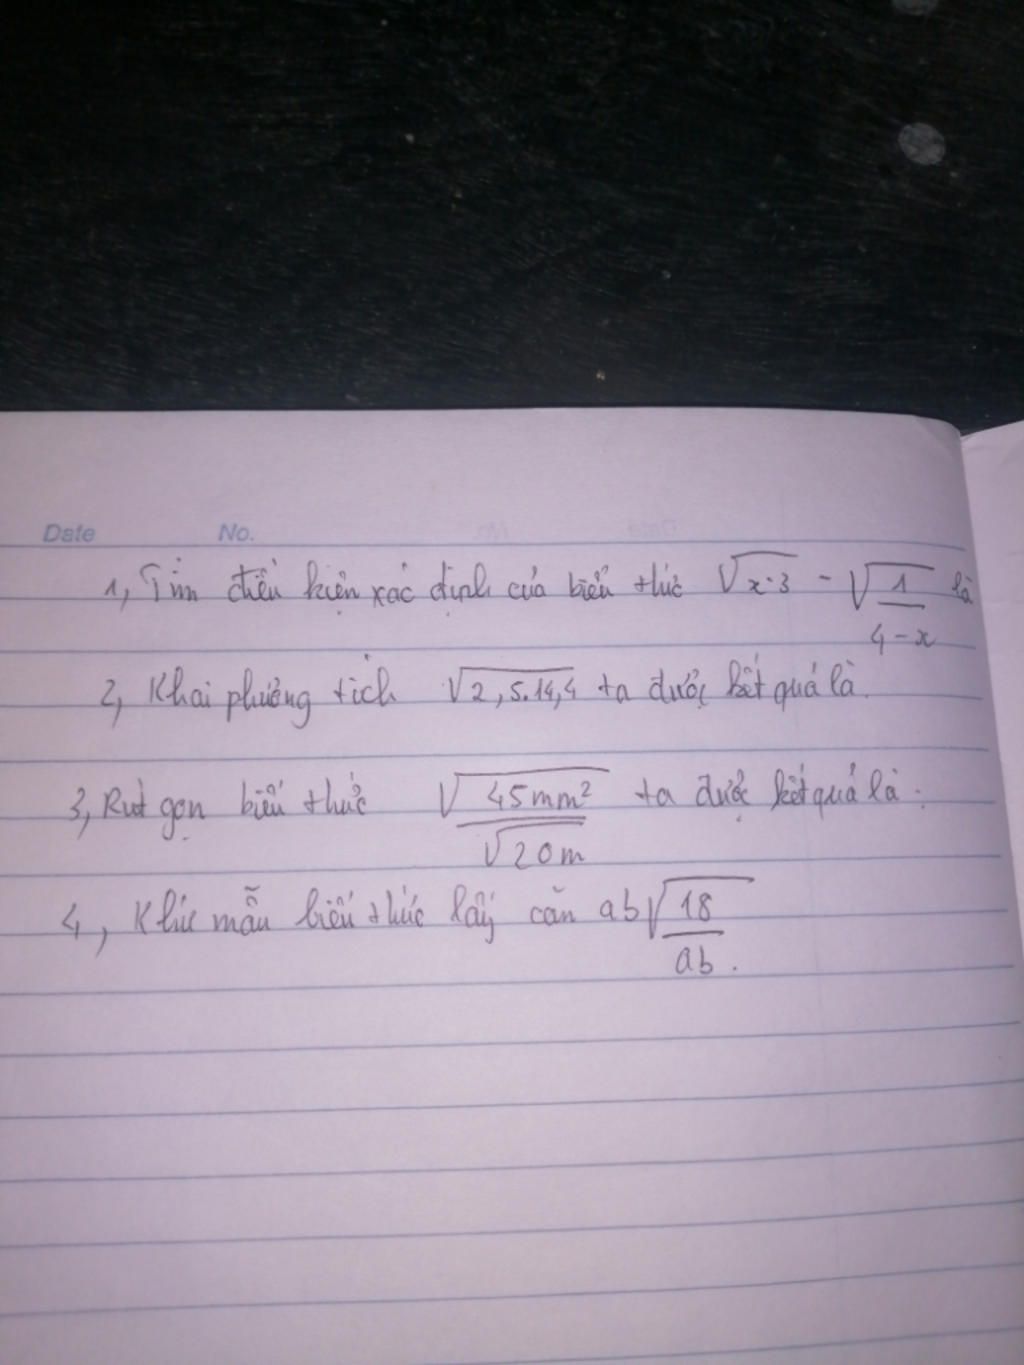 Date No.
1, Tìm điều kiện xác định của biểu thức √x-3 - √1/4-x là
2, Khai phương tích √2,5.14,4 ta được kết quả là.
3, Rút gọn biểu thức √45mm²/√20m ta được kết quả là:
4, Khử mẫu biểu thức lấy căn ab√18/ab.